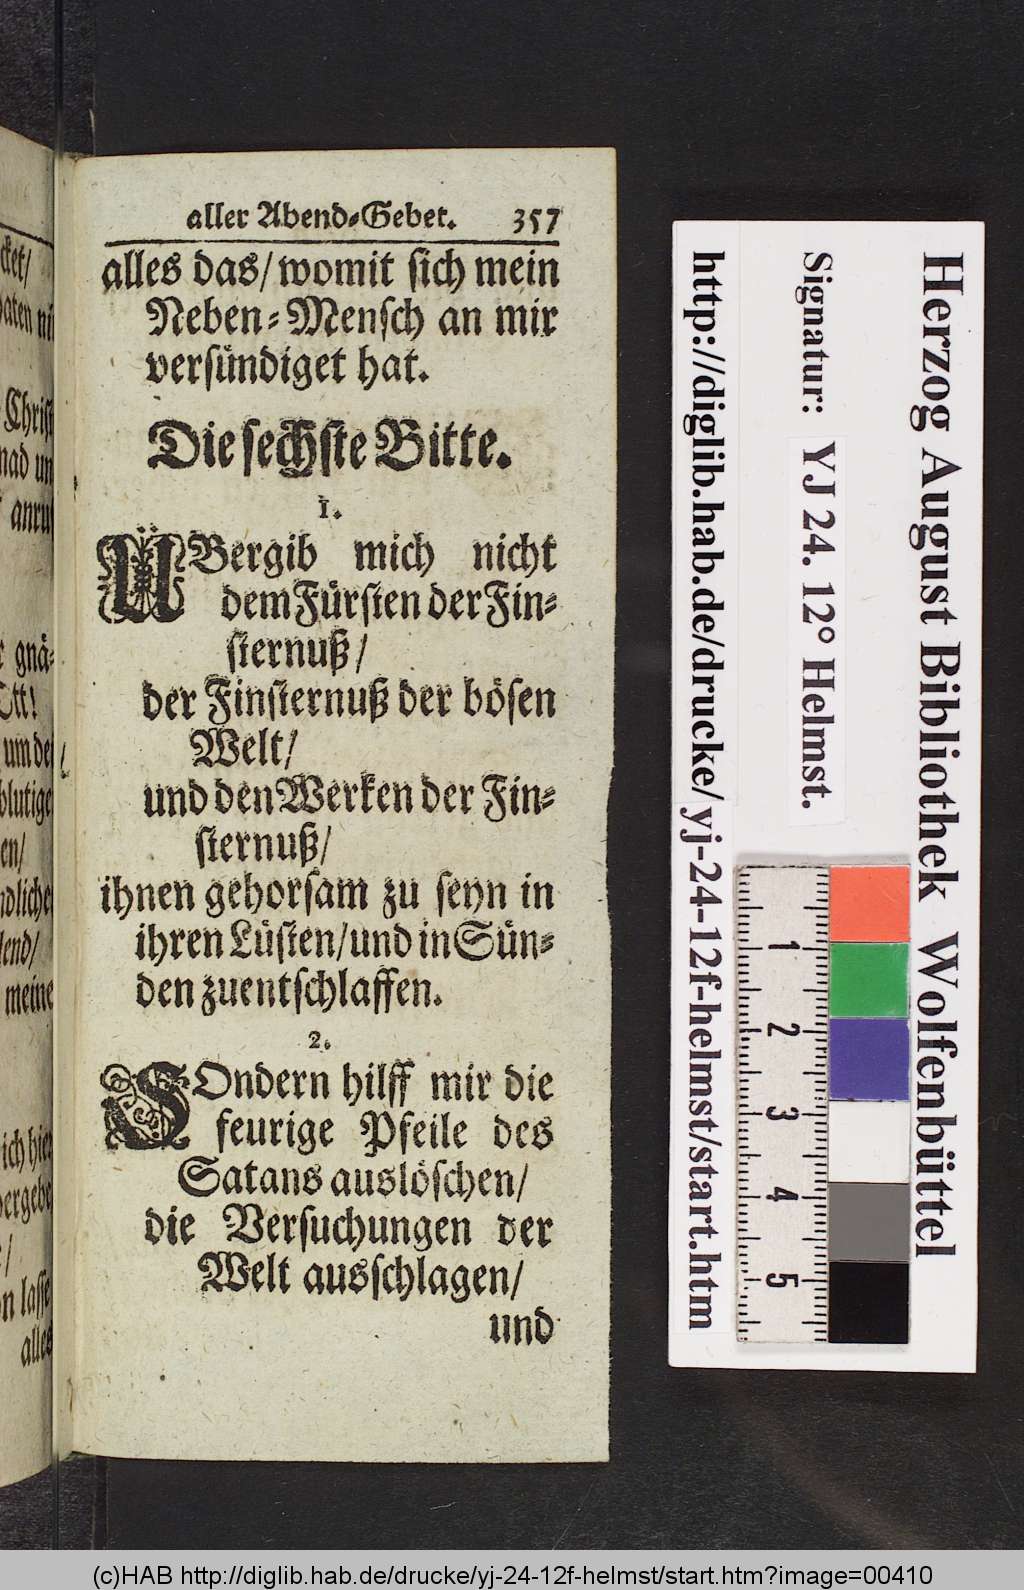 aller Abend-Gebet. 357
alles das/ womit sich mein
Neben-Mensch an mir
versündiget hat.
Die sechste Bitte.
1.
ÜBergib mich nicht
dem Fürsten der Fin-
sternuß/
der Finsternuß der bösen
Welt/
und den Werken der Fin-
sternuß/
ihnen gehorsam zu seyn in
ihren Lüsten/ und in Sün-
den zuentschlaffen.
2.
SOndern hilff mir die
feurige Pfeile des
Satans auslöschen/
die Versuchungen der
Welt ausschlagen/
und
cket/
Christ
anruf
gnä-
um de
blutige
en/
lend/
meine
n lasse
alles
Herzog August Bibliothek Wolfenbüttel
Signatur: YJ 24. 12° Helmst.
http://diglib.hab.de/drucke/yj-24-12f-helmst/start.htm
1
2
3
4
5
(c)HAB http://diglib.hab.de/drucke/yj-24-12f-helmst/start.htm?image=00410